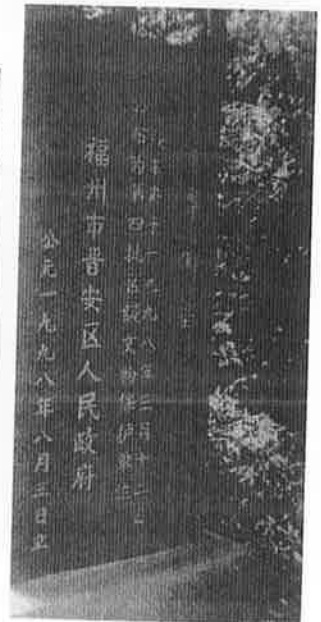 于一九九八年三月十二日
公布为第四批区级文物保护单位
福州市晋安区人民政府
公元一九九八年八月三日立